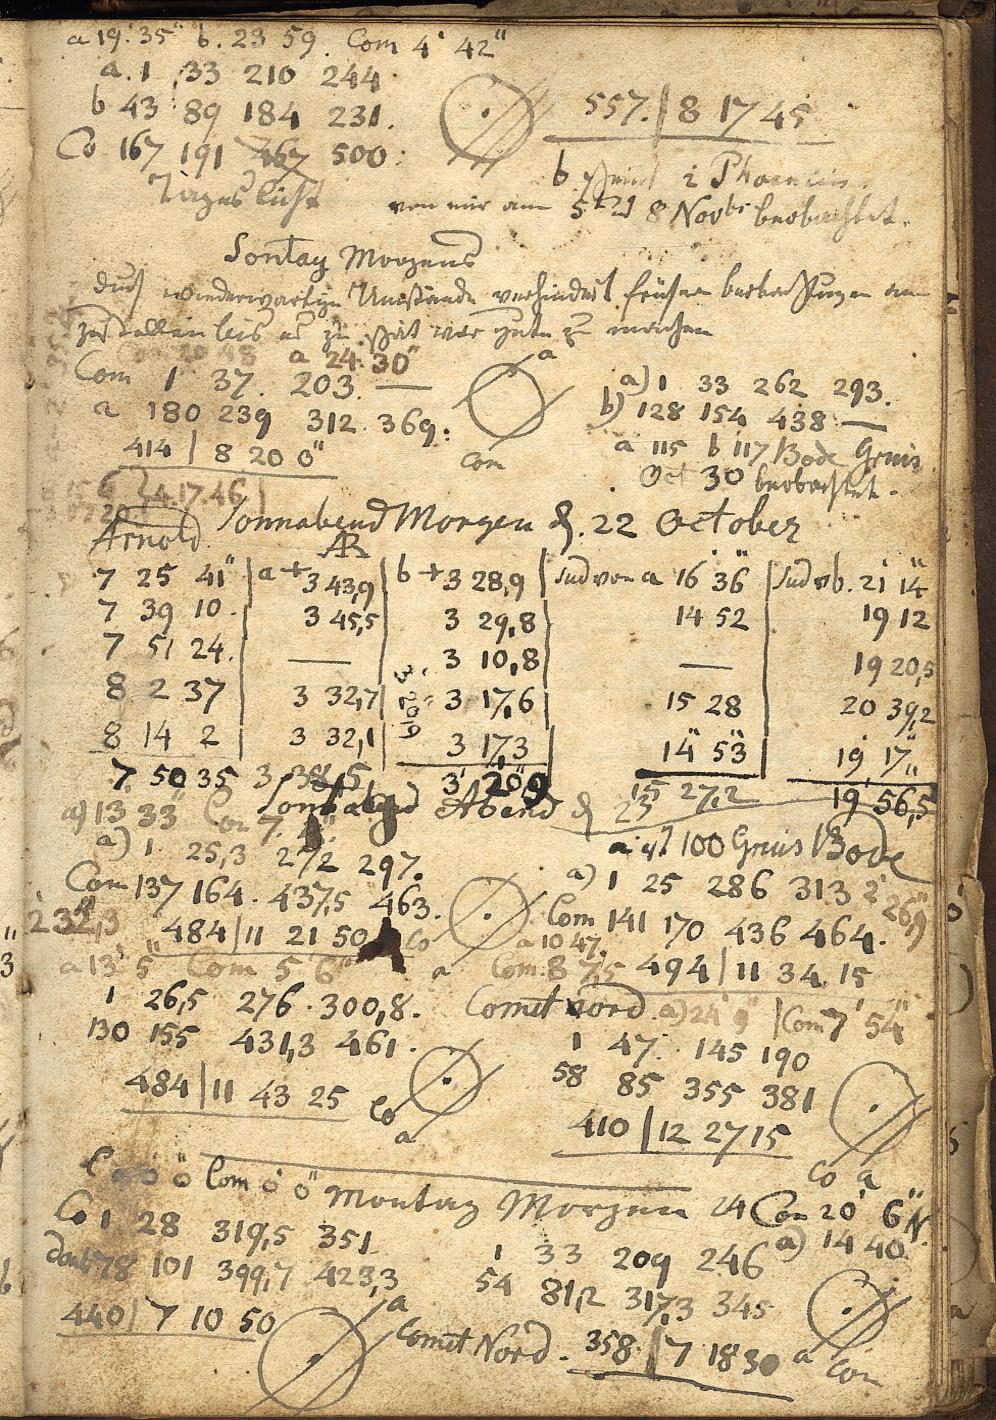 a 19' 35" b. 23 59. Com 4' 42"
a. 1 33 210 244
b 43 89 184 231.
Co 167 191 467 500.
Tages licht
557. | 8 17 45
b i Phoenicis.
von mir am 8 Novbr beobachtet.
Sontag Morgens
durch wiederwartige Umstände verhindert frühere beobachtungen an
zustellen bis es zu spät war gute zu machen
a 24. 30"
Com 1 37. 203. —
a 180 239 312. 369.
414 | 8 20 0"
a
com
a) 1 33 262 293.
b) 128 154 438 —
a 115 b 117 Bode Gruis
Oct 30 beobachtet.
4.17.46
Arnold Sonnabend Morgen d. 22 October
AR
7 25 41" | a + 3 43,9 | b + 3 28,9 | Sud von a 16 36" | Sud v b. 21 14"
7 39 10. 3 45,5 3 29,8 14 52 19 12
7 51 24. — 3 10,8 — 19 20,5
8 2 37 3 32,7 3 17,6 15 28 20 39,2
8 14 2 3 32,1 3 17,3 14" 53" 19 17"
7 50 35 3 38,5 3' 20,9 15 27,2 19' 56,5
Abend d 23
a) 13 33" Com 7.
a) 1 25,3 272 297.
Com 137 164. 437,5 463.
484 | 11 21 50
Co
a
a ist 100 Gruis Bode
a) 1 25 286 313
Com 141 170 436 464.
a 10 47.
Com. 8 7,5 494 | 11 34. 15
a 13' 5" Com 5' 6"
1 26,5 276. 300,8.
130 155 431,3 461.
484 | 11 43 25
Co
a
Comet Nord. a) 24' 9" | Com 7' 54"
1 47. 145 190
58 85 355 381
410 | 12 27 15
Co a
Com 0' 0" Montag Morgen 24 Com 20' 6" N.
a) 14 40.
Co 1 28 319,5 351
78 101 399,7 423,3
440 | 7 10 50
a
Comet Nord.
1 33 209 246
54 81,2 317,3 345
358 | 7 18 30
a Com